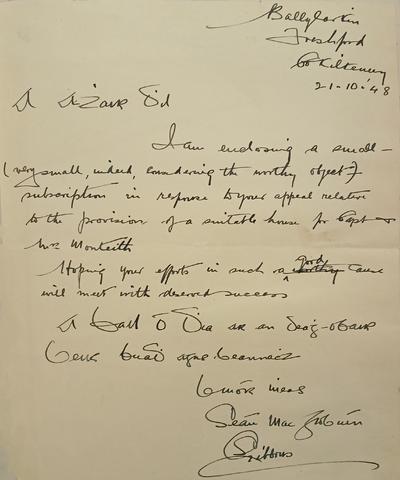 Ballylarkin
Freshford
Co Kilkenny
21-10-'48
A
I am enclosing a small -
(very small, indeed, considering the worthy object)
subscription in response to your appeal relative
to the provision of a suitable house for Capt &
Mrs Monteith
Hoping your efforts in such a good cause
will meet with deserved success
Ó Dia ar an
agus beannacht
Seán Mac
Gibbons